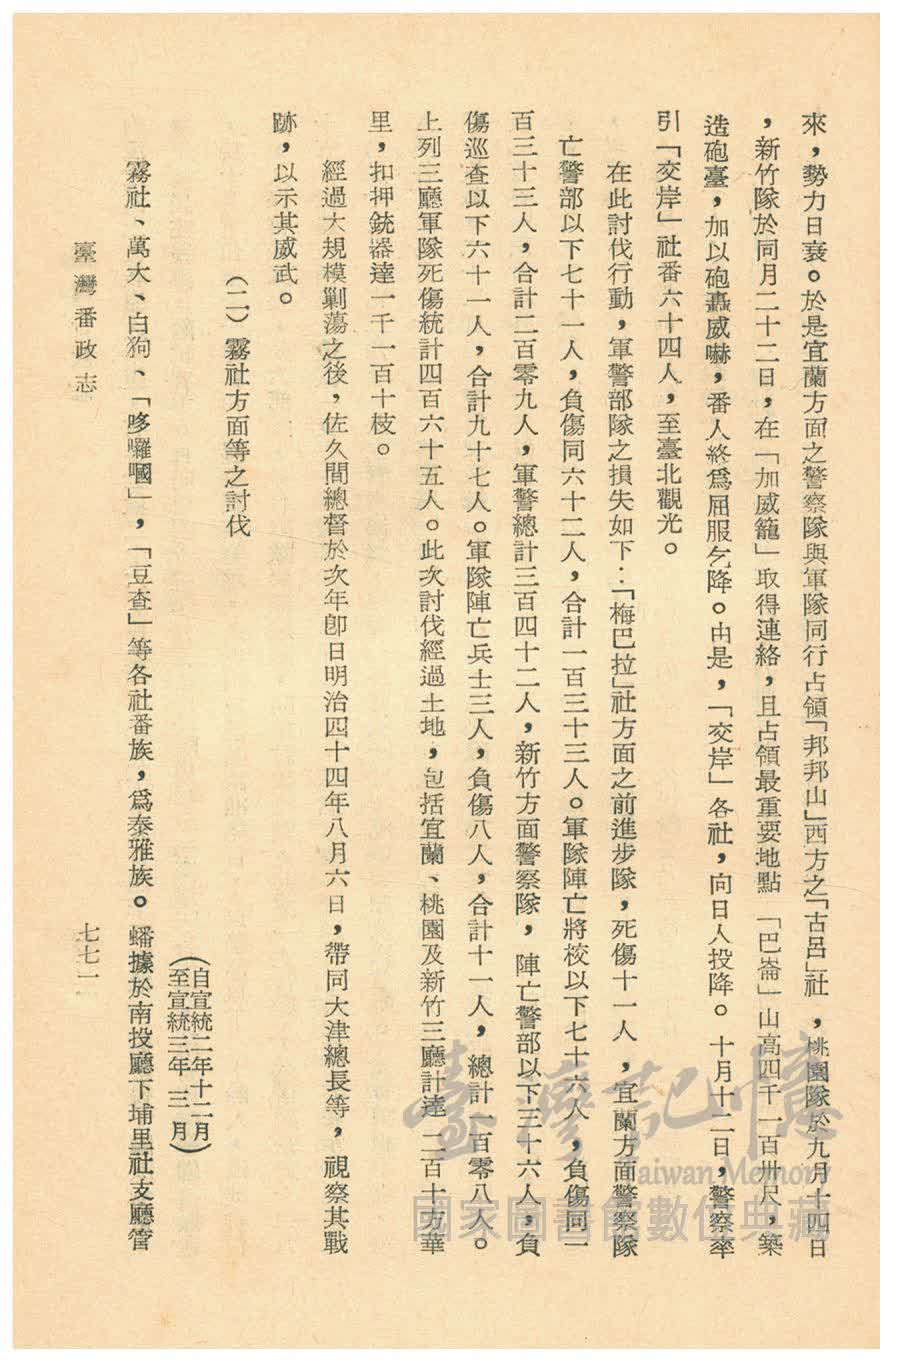 來，勢力日衰。於是宜蘭方面之警察隊與軍隊同行占領「邦邦山」西方之「古呂」社，桃園隊於九月十四日
，新竹隊於同月二十二日，在「加威籠」取得連絡，且占領最重要地點「巴崙」山高四千一百卅尺，築
造砲臺，加以砲轟威嚇，番人終爲屈服乞降。由是，「交岸」各社，向日人投降。十月十二日，警察率
引「交岸」社番六十四人，至臺北觀光。
在此討伐行動，軍警部隊之損失如下：「梅巴拉」社方面之前進步隊，死傷十一人，宜蘭方面警察隊
亡警部以下七十一人，負傷同六十二人，合計一百三十三人。軍隊陣亡將校以下七十六人，負傷同一
百三十三人，合計二百零九人，軍警總計三百四十二人，新竹方面警察隊，陣亡警部以下三十六人，負
傷巡查以下六十一人，合計九十七人。軍隊陣亡兵士三人，負傷八人，合計十一人，總計一百零八人。
上列三廳軍隊死傷統計四百六十五人。此次討伐經過土地，包括宜蘭、桃園及新竹三廳計達二百十方華
里，扣押銃器達一千一百十枝。
經過大規模剿蕩之後，佐久間總督於次年卽日明治四十四年八月六日，帶同大津總長等，視察其戰
跡，以示其威武。
（二）霧社方面等之討伐
（自宣統二年十二月
至宣統三年三月）
霧社、萬大、白狗、「哆囉嘓」，「豆査」等各社番族，爲泰雅族。蟠據於南投廳下埔里社支廳管
臺灣番政志
七七一
臺灣記憶
Taiwan Memory
國家圖書館數位典藏